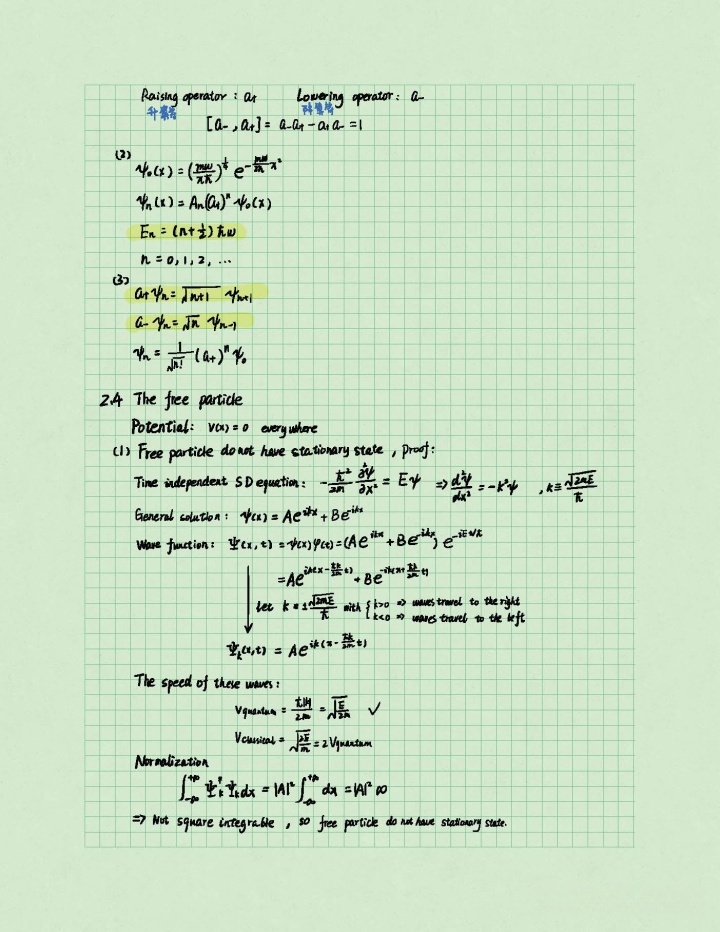 Raising operator : a₊ Lowering operator : a₋
升算符 降算符
[a₋ , a₊] = a₋a₊ − a₊a₋ = 1
(2)
ψ₀(x) = (mω/πħ)^{1/4} e^{−(mω/2ħ)x²}
ψₙ(x) = Aₙ(a₊)ⁿ ψ₀(x)
Eₙ = (n+½) ħω
n = 0, 1, 2, ...
(3)
a₊ψₙ = √(n+1) ψₙ₊₁
a₋ψₙ = √n ψₙ₋₁
ψₙ = 1/√(n!) (a₊)ⁿ ψ₀
2.4 The free particle
Potential : V(x) = 0 everywhere
(1) Free particle do not have stationary state , Proof :
Time independent SD equation : −ħ²/2m ∂²ψ/∂x² = Eψ ⇒ d²ψ/dx² = −k²ψ , k ≡ √(2mE)/ħ
General solution : ψ(x) = Ae^{ikx} + Be^{−ikx}
Wave function : Ψ(x, t) = ψ(x) φ(t) = (Ae^{ikx} + Be^{−ikx}) e^{−iEt/ħ}
= Ae^{ik(x − (ħk/2m)t)} + Be^{−ik(x + (ħk/2m)t)}
let k = ±√(2mE)/ħ with { k>0 ⇒ waves travel to the right
k<0 ⇒ waves travel to the left
Ψₖ(x,t) = Ae^{ik(x − (ħk/2m)t)}
The speed of these waves :
Vquantum = ħ|k|/2m = √(E/2m) ✓
Vclassical = √(2E/m) = 2Vquantum
Normalization
∫_{−∞}^{+∞} Ψₖ* Ψₖ dx = |A|² ∫_{−∞}^{+∞} dx = |A|² ∞
⇒ Not square integrable , so free particle do not have stationary state.